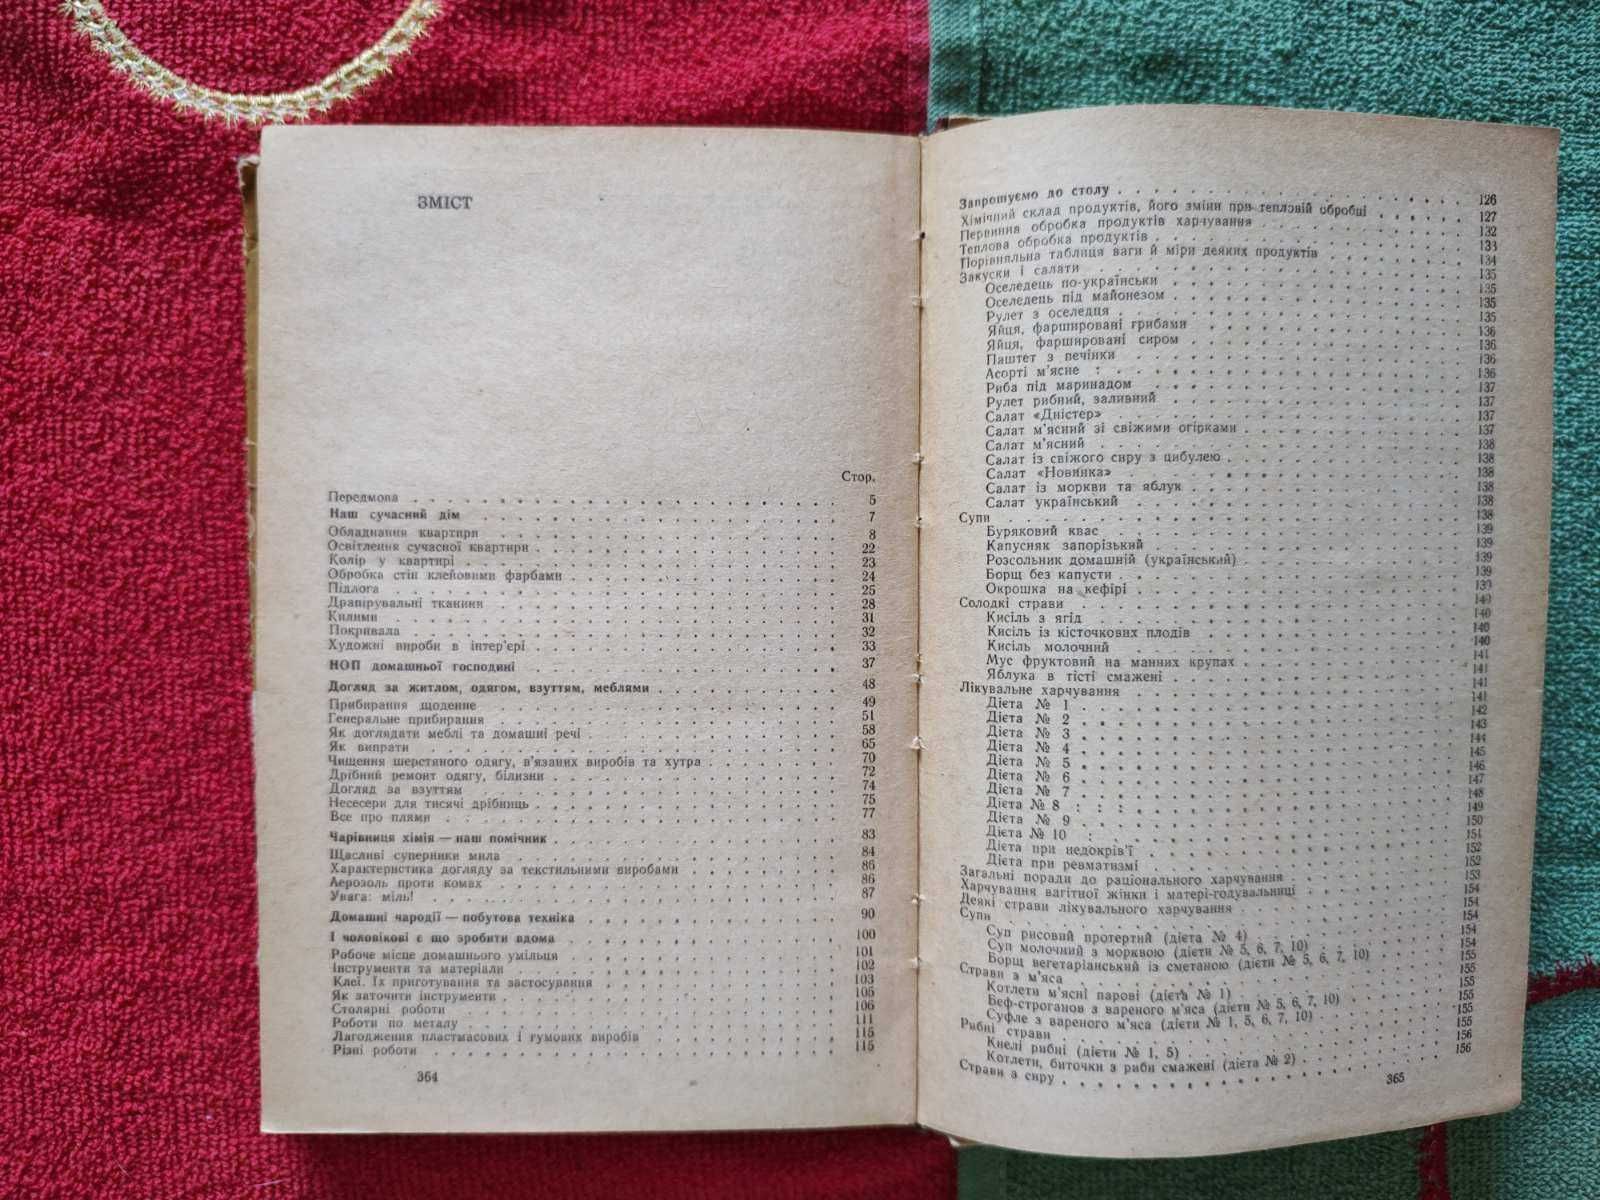 ЗМІСТ
Стор.
Передмова . . . 5
Наш сучасний дім . . . 7
Обладнання квартири . . . 8
Освітлення сучасної квартири . . . 22
Колір у квартирі . . . 23
Обробка стін клейовими фарбами . . . 24
Підлога . . . 25
Драпірувальні тканини . . . 28
Килими . . . 31
Покривала . . . 32
Художні вироби в інтер'єрі . . . 33
НОП домашньої господині . . . 37
Догляд за житлом, одягом, взуттям, меблями . . . 48
Прибирання щоденне . . . 49
Генеральне прибирання . . . 51
Як доглядати меблі та домашні речі . . . 58
Як випрати . . . 65
Чищення шерстяного одягу, в'язаних виробів та хутра . . . 70
Дрібний ремонт одягу, білизни . . . 72
Догляд за взуттям . . . 74
Несесери для тисячі дрібниць . . . 75
Все про плями . . . 77
Чарівниця хімія — наш помічник . . . 83
Щасливі суперники мила . . . 84
Характеристика догляду за текстильними виробами . . . 86
Аерозоль проти комах . . . 86
Увага: міль! . . . 87
Домашні чародії — побутова техніка . . . 90
І чоловікові є що зробити вдома . . . 100
Робоче місце домашнього умільця . . . 101
Інструменти та матеріали . . . 102
Клеї. Їх приготування та застосування . . . 103
Як заточити інструменти . . . 105
Столярні роботи . . . 106
Роботи по металу . . . 111
Лагодження пластмасових і гумових виробів . . . 115
Різні роботи . . . 115
364
Запрошуємо до столу . . . 126
Хімічний склад продуктів, його зміни при тепловій обробці . . . 127
Первинна обробка продуктів харчування . . . 132
Теплова обробка продуктів . . . 133
Порівняльна таблиця ваги й міри деяких продуктів . . . 134
Закуски і салати . . . 135
Оселедець по-українськи . . . 135
Оселедець під майонезом . . . 135
Рулет з оселедця . . . 135
Яйця, фаршировані грибами . . . 136
Яйця, фаршировані сиром . . . 136
Паштет з печінки . . . 136
Асорті м'ясне . . . 136
Риба під маринадом . . . 137
Рулет рибний, заливний . . . 137
Салат «Дністер» . . . 137
Салат м'ясний зі свіжими огірками . . . 137
Салат м'ясний . . . 138
Салат із свіжого сиру з цибулею . . . 138
Салат «Новинка» . . . 138
Салат із моркви та яблук . . . 138
Салат український . . . 138
Супи . . . 138
Буряковий квас . . . 139
Капусняк запорізький . . . 139
Розсольник домашній (український) . . . 139
Борщ без капусти . . . 139
Окрошка на кефірі . . . 139
Солодкі страви . . . 140
Кисіль з ягід . . . 140
Кисіль із кісточкових плодів . . . 140
Кисіль молочний . . . 140
Мус фруктовий на манних крупах . . . 141
Яблука в тісті смажені . . . 141
Лікувальне харчування . . . 141
Дієта № 1 . . . 141
Дієта № 2 . . . 142
Дієта № 3 . . . 143
Дієта № 4 . . . 144
Дієта № 5 . . . 145
Дієта № 6 . . . 146
Дієта № 7 . . . 147
Дієта № 8 . . . 148
Дієта № 9 . . . 149
Дієта № 10 . . . 150
Дієта при недокрів'ї . . . 151
Дієта при ревматизмі . . . 152
Загальні поради до раціонального харчування . . . 152
Харчування вагітної жінки і матері-годувальниці . . . 153
Деякі страви лікувального харчування . . . 154
Супи . . . 154
Суп рисовий протертий (дієта № 4) . . . 154
Суп молочний з морквою (дієти № 5, 6, 7, 10) . . . 154
Борщ вегетаріанський із сметаною (дієти № 5, 6, 7, 10) . . . 154
Страви з м'яса . . . 155
Котлети м'ясні парові (дієта № 1) . . . 155
Беф-строганов з вареного м'яса (дієти № 5, 6, 7, 10) . . . 155
Суфле з вареного м'яса (дієти № 1, 5, 6, 7, 10) . . . 155
Рибні страви . . . 155
Кнелі рибні (дієти № 1, 5) . . . 155
Котлети, биточки з риби смажені (дієта № 2) . . . 156
Страви з сиру . . . 156
365